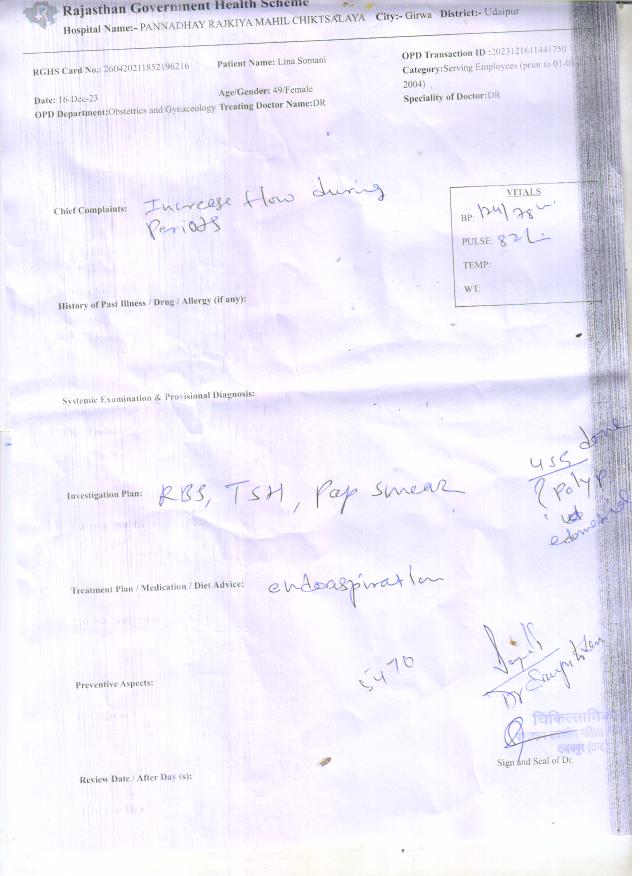 Rajasthan Government Health Scheme
Hospital Name:- PANNADHAY RAJKIYA MAHIL CHIKTSALAYA City:- Girwa District:- Udaipur
RGHS Card No.: 260420211852196216 Patient Name: Lina Somani OPD Transaction ID :2023121611441750
Category:Serving Employees (prior to 01-01-
2004)
Date: 16-Dec-23 Age/Gender: 49/Female
OPD Department:Obstetrics and Gynaecology Treating Doctor Name:DR Speciality of Doctor:DR
Chief Complaints: Increase flow during
Periods
VITALS
BP: 124/78
PULSE: 82/
TEMP:
WT:
History of Past Illness / Drug / Allergy (if any):
Systemic Examination & Provisional Diagnosis:
USG done
? Polyp
Investigation Plan: RBS, TSH, Pap smear
Treatment Plan / Medication / Diet Advice: endoaspiration
5470
Preventive Aspects:
Dr
उदयपुर (राज.)
Sign and Seal of Dr.
Review Date / After Day (s):